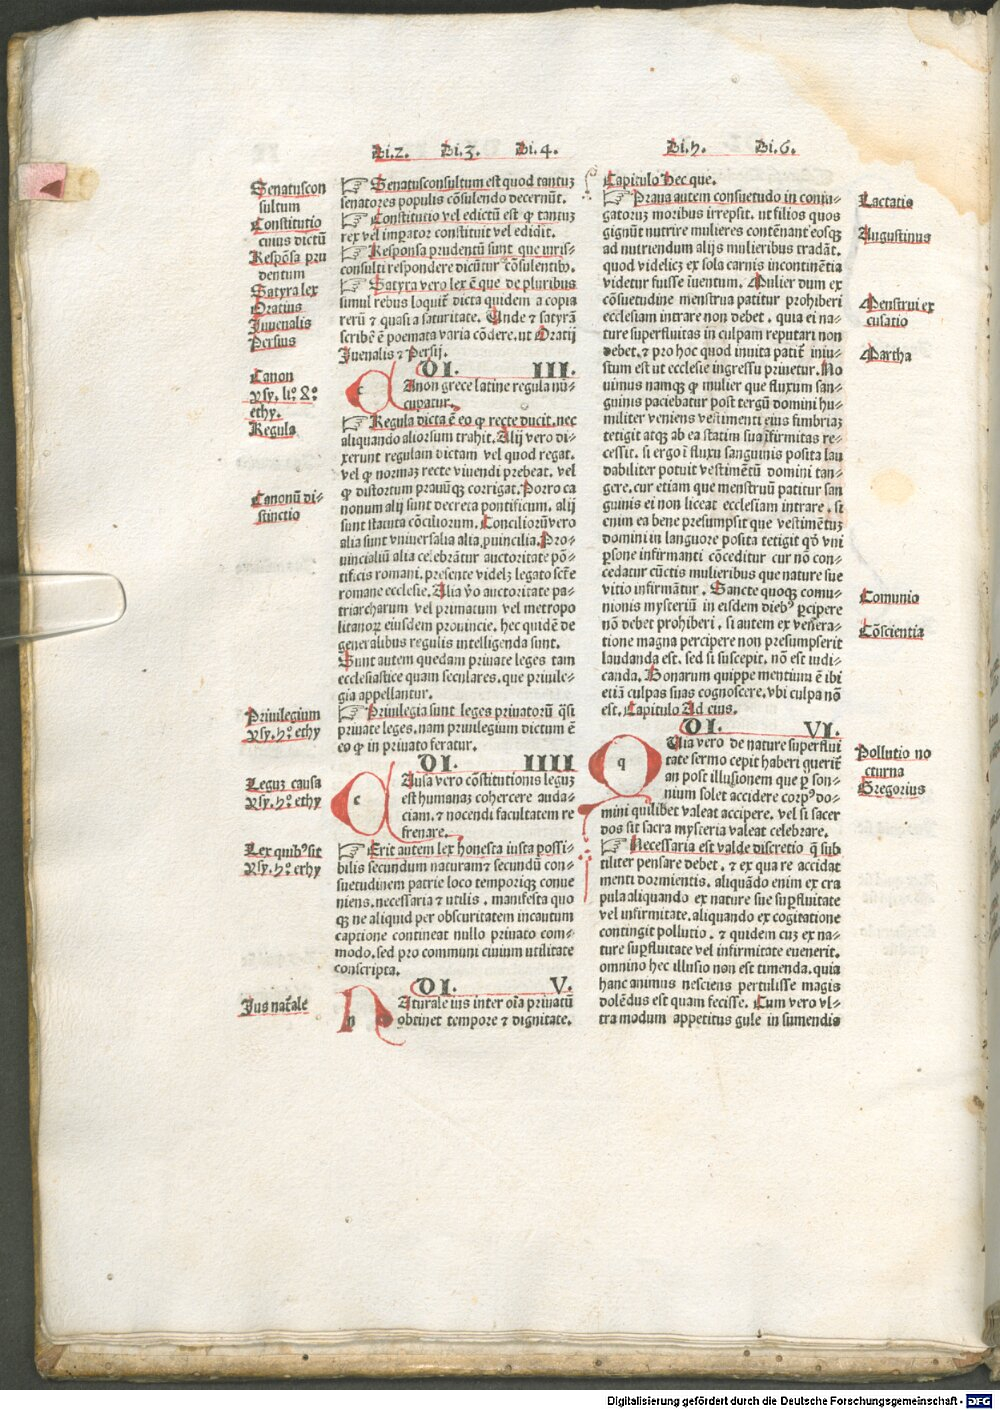 Di.2. Di.3. Di.4.
Di.5. Di.6.
Senatuscon
sultum
Constitutio
cuius dictū
Respōsa pru
dentum
Satyra lex
Oratius
Iuuenalis
Persius
Canon
ysy. li. 8.
ethy.
Regula
Canonū di-
stinctio
Priuilegium
ysy. 5. ethy
Leguz causa
ysy. 5. ethy
Lex qualꝰ sit
ysy. 5. ethy
Ius nat̄ale
☞ Senatusconsultum est quod tantuz
senatores populis cōsulendo decernūt.
☞ Constitutio vel edictū est qꝫ tantuz
rex vel imꝑator constituit vel edidit.
☞ Responsa prudentū sunt que iuris-
consulti respondere dicūtur cōsulentibꝰ.
☞ Satyra vero lex ē que de pluribus
simul rebus loquit̄ dicta quidem a copia
rerū ⁊ quasi a saturitate. Unde ⁊ satyrā
scribē ē poemata varia cōdere. ut Oratij
Iuenalis ⁊ Persij.
DI. III.
c Anon grece latine regula nū-
cupatur.
☞ Regula dicta ē eo qꝫ recte ducit. nec
aliquando aliorsum trahit. Alij vero di-
xerunt regulam dictam vel quod regat.
vel qꝫ normaz recte viuendi prebeat. vel
qꝫ distortum prauūqꝫ corrigat. Porro ca
nonum alij sunt decreta pontificum. alij
sunt statuta cōciliorum. Conciliorū vero
alia sunt vniuersalia alia ꝓuincilia. Pro-
uincialiū alia celebrātur auctoritate pō-
tificis romani. presente videlꝫ legato scēte
romane ecclesie. Alia v̄o auctoritate pa-
triarcharum vel primatum vel metropo
litanoꝝ eiusdem prouincie. hec quidē de
generalibus regulis intelligenda sunt.
Sunt autem quedam priuate leges tam
ecclesiastice quam seculares. que priuile-
gia appellantur.
☞ Priuilegia sunt leges priuatorū q̄si
priuate leges. nam priuilegium dictum ē
eo qꝫ in priuato feratur.
DI. IIII
c Ausa vero cōstitutionis leguz
est humanaz cohercere auda-
ciam. ⁊ nocendi facultatem re
frenare.
☞ Erit autem lex honesta iusta possi-
bilis secundum naturam ⁊ secundū con-
suetudinem patrie loco temporiqꝫ conue
niens. necessaria ⁊ utilis. manifesta quo
qꝫ ne aliquid per obscuritatem incautum
captione contineat nullo priuato com-
modo. sed pro communi ciuium utilitate
conscripta.
DI. V.
n Aturale ius inter oīa primatū
obtinet tempore ⁊ dignitate.
Capitulo Hec que.
☞ Praua autem consuetudo in coniu-
gatoruz moribus irrepsit. ut filios quos
gignūt nutrire mulieres contēnant eosqꝫ
ad nutriendum alijs mulieribus tradāt.
quod videlicꝫ ex sola carnis incontinētia
videtur fuisse iuentum. Mulier dum ex
cōsuetudine menstrua patitur prohiberi
ecclesiam intrare non debet. quia ei na-
ture superfluitas in culpam reputari non
debet. ⁊ pro hoc quod inuita patit̄ iniu-
stum est ut ecclesie ingressu priuetur. No
uimus namqꝫ qꝫ mulier que fluxum san-
guinis paciebatur post tergū domini hu-
militer veniens vestimenti eius fimbriaz
tetigit atqꝫ ab ea statim sua īfirmitas re-
cessit. si ergo ī fluxu sanguinis posita lau
dabiliter potuit vestimētū domini tan-
gere. cur etiam que menstruū patitur san
guinis ei non liceat ecclesiam intrare. si
enim ea bene presumpsit que vestimētuz
domini in languore posita tetigit qd̄ vni
ꝑsone infirmanti cōceditur cur nō con-
cedatur cūctis mulieribus que nature sue
vitio infirmātur. Sancte quoqꝫ comu-
nionis mysteriū in eisdem diebꝰ ꝑcipere
nō debet prohiberi. si autem ex venera-
tione magna percipere non presumpserit
laudanda est. sed si suscepit. nō est iudi-
canda. Bonarum quippe mentium ē ibi
etiā culpas suas cognoscere. vbi culpa nō
est. Capitulo Ad eius.
DI. VI.
q Uia vero de nature superflui
tate sermo cepit haberi querit̄
an post illusionem que ꝑ som-
nium solet accidere corpꝰ do-
mini quilibet valeat accipere. vel si sacer
dos sit sacra mysteria valeat celebrare.
☞ Necessaria est valde discretio q̄ sub
tiliter pensare debet. ⁊ ex qua re accidat
menti dormientis. aliquādo enim ex cra
pula aliquando ex nature sue suꝑfluitate
vel infirmitate. aliquando ex cogitatione
contingit pollutio. ⁊ quidem cuz ex na-
ture suꝑfluitate vel infirmitate euenerit.
omnino hec illusio non est timenda. quia
hanc animus nesciens pertulisse magis
dolēdus est quam fecisse. Cum vero vl-
tra modum appetitus gule in sumendis
Lactatis
Augustinus
Menstrui ex
cusatio
Martha
Comunio
Cōscientia
Pollutio no
cturna
Gregorius
Digitalisierung gefördert durch die Deutsche Forschungsgemeinschaft - DFG